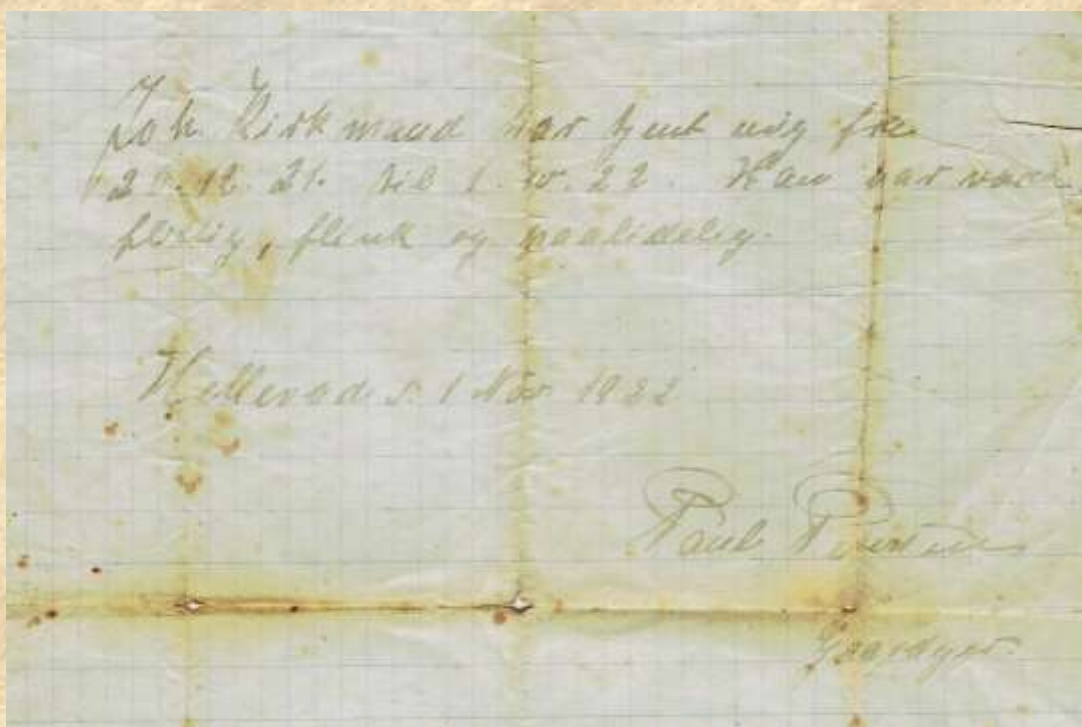 Joh. Kirkmand har tjent mig fra
20.12.21. til 1. 10. 22. Han har være
flittig, flink og paalidelig.
Hellevad d. 1 Nov 1922
Paul
Gaardejer